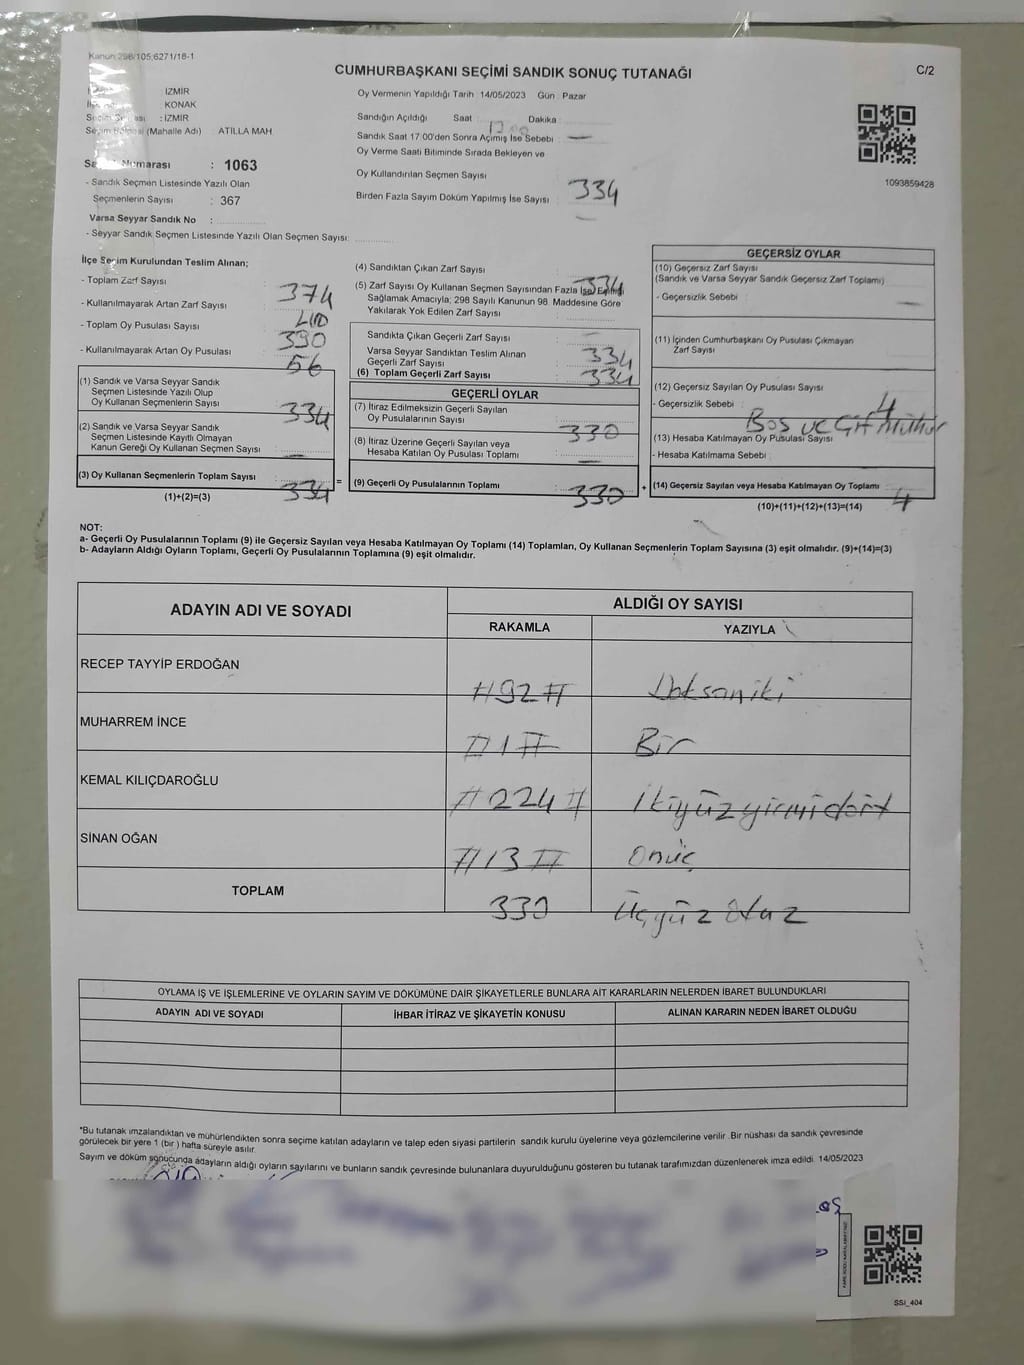 Kanun 298/105;6271/18-1
CUMHURBAŞKANI SEÇİMİ SANDIK SONUÇ TUTANAĞI
C/2
: İZMİR
: KONAK
: İZMİR
(Mahalle Adı) ATİLLA MAH.
Numarası : 1063
- Sandık Seçmen Listesinde Yazılı Olan
Seçmenlerin Sayısı : 367
Varsa Seyyar Sandık No :
- Seyyar Sandık Seçmen Listesinde Yazılı Olan Seçmen Sayısı:
Oy Vermenin Yapıldığı Tarih : 14/05/2023 Gün : Pazar
Sandığın Açıldığı Saat : 17.00 Dakika :
Sandık Saat 17.00'den Sonra Açımış İse Sebebi : —
Oy Verme Saati Bitiminde Sırada Bekleyen ve
Oy Kullandırılan Seçmen Sayısı
Birden Fazla Sayım Döküm Yapılmış İse Sayısı : 334
1093859428
İlçe Seçim Kurulundan Teslim Alınan;
- Toplam Zarf Sayısı : 374
- Kullanılmayarak Artan Zarf Sayısı :
- Toplam Oy Pusulası Sayısı : 390
- Kullanılmayarak Artan Oy Pusulası : 56
(1) Sandık ve Varsa Seyyar Sandık
Seçmen Listesinde Yazılı Olup
Oy Kullanan Seçmenlerin Sayısı : 334
(2) Sandık ve Varsa Seyyar Sandık
Seçmen Listesinde Kayıtlı Olmayan
Kanun Gereği Oy Kullanan Seçmen Sayısı : —
(3) Oy Kullanan Seçmenlerin Toplam Sayısı : 334 =
(1)+(2)=(3)
(4) Sandıktan Çıkan Zarf Sayısı : 334
(5) Zarf Sayısı Oy Kullanan Seçmen Sayısından Fazla İse Eşitliği
Sağlamak Amacıyla; 298 Sayılı Kanunun 98. Maddesine Göre
Yakılarak Yok Edilen Zarf Sayısı : —
Sandıkta Çıkan Geçerli Zarf Sayısı : 334
Varsa Seyyar Sandıktan Teslim Alınan
Geçerli Zarf Sayısı
(6) Toplam Geçerli Zarf Sayısı : 334
GEÇERLİ OYLAR
(7) İtiraz Edilmeksizin Geçerli Sayılan
Oy Pusulalarının Sayısı : 330
(8) İtiraz Üzerine Geçerli Sayılan veya
Hesaba Katılan Oy Pusulası Toplamı : —
(9) Geçerli Oy Pusulalarının Toplamı : 330 +
GEÇERSİZ OYLAR
(10) Geçersiz Zarf Sayısı
(Sandık ve Varsa Seyyar Sandık Geçersiz Zarf Toplamı)
- Geçersizlik Sebebi : —
(11) İçinden Cumhurbaşkanı Oy Pusulası Çıkmayan
Zarf Sayısı
(12) Geçersiz Sayılan Oy Pusulası Sayısı : 4
- Geçersizlik Sebebi : Boş ve Çift Mühür
(13) Hesaba Katılmayan Oy Pusulası Sayısı
- Hesaba Katılmama Sebebi
(14) Geçersiz Sayılan veya Hesaba Katılmayan Oy Toplamı : 4
(10)+(11)+(12)+(13)=(14)
NOT:
a- Geçerli Oy Pusulalarının Toplamı (9) ile Geçersiz Sayılan veya Hesaba Katılmayan Oy Toplamı (14) Toplamları, Oy Kullanan Seçmenlerin Toplam Sayısına (3) eşit olmalıdır. (9)+(14)=(3)
b- Adayların Aldığı Oyların Toplamı, Geçerli Oy Pusulalarının Toplamına (9) eşit olmalıdır.
ADAYIN ADI VE SOYADI ALDIĞI OY SAYISI
RAKAMLA YAZIYLA
RECEP TAYYİP ERDOĞAN #92# Doksaniki
MUHARREM İNCE #1# Bir
KEMAL KILIÇDAROĞLU #224# İkiyüzyirmidört
SİNAN OĞAN #13# Onüç
TOPLAM 330 Üçyüz Otuz
OYLAMA İŞ VE İŞLEMLERİNE VE OYLARIN SAYIM VE DÖKÜMÜNE DAİR ŞİKAYETLERLE BUNLARA AİT KARARLARIN NELERDEN İBARET BULUNDUKLARI
ADAYIN ADI VE SOYADI İHBAR İTİRAZ VE ŞİKAYETİN KONUSU ALINAN KARARIN NEDEN İBARET OLDUĞU
*Bu tutanak imzalandıktan ve mühürlendikten sonra seçime katılan adayların ve talep eden siyasi partilerin sandık kurulu üyelerine veya gözlemcilerine verilir. Bir nüshası da sandık çevresinde
görülecek bir yere 1 (bir) hafta süreyle asılır.
Sayım ve döküm sonucunda adayların aldığı oyların sayılarını ve bunların sandık çevresinde bulunanlara duyurulduğunu gösteren bu tutanak tarafımızdan düzenlenerek imza edildi. 14/05/2023
SSI_404